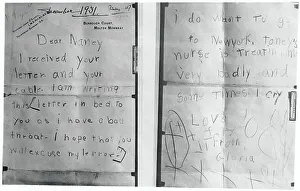 December 1931
BURROUGH COURT,
MELTON MOWBRAY.
Dear Naney
I received your
letter and your
cable I am writing
this letter in bed to
you as I have a bad
throat I hope that you
will excuse my
i do want to go
to Newyork
nurse is treating
very badly and
Some times I cry
Love
Gloria